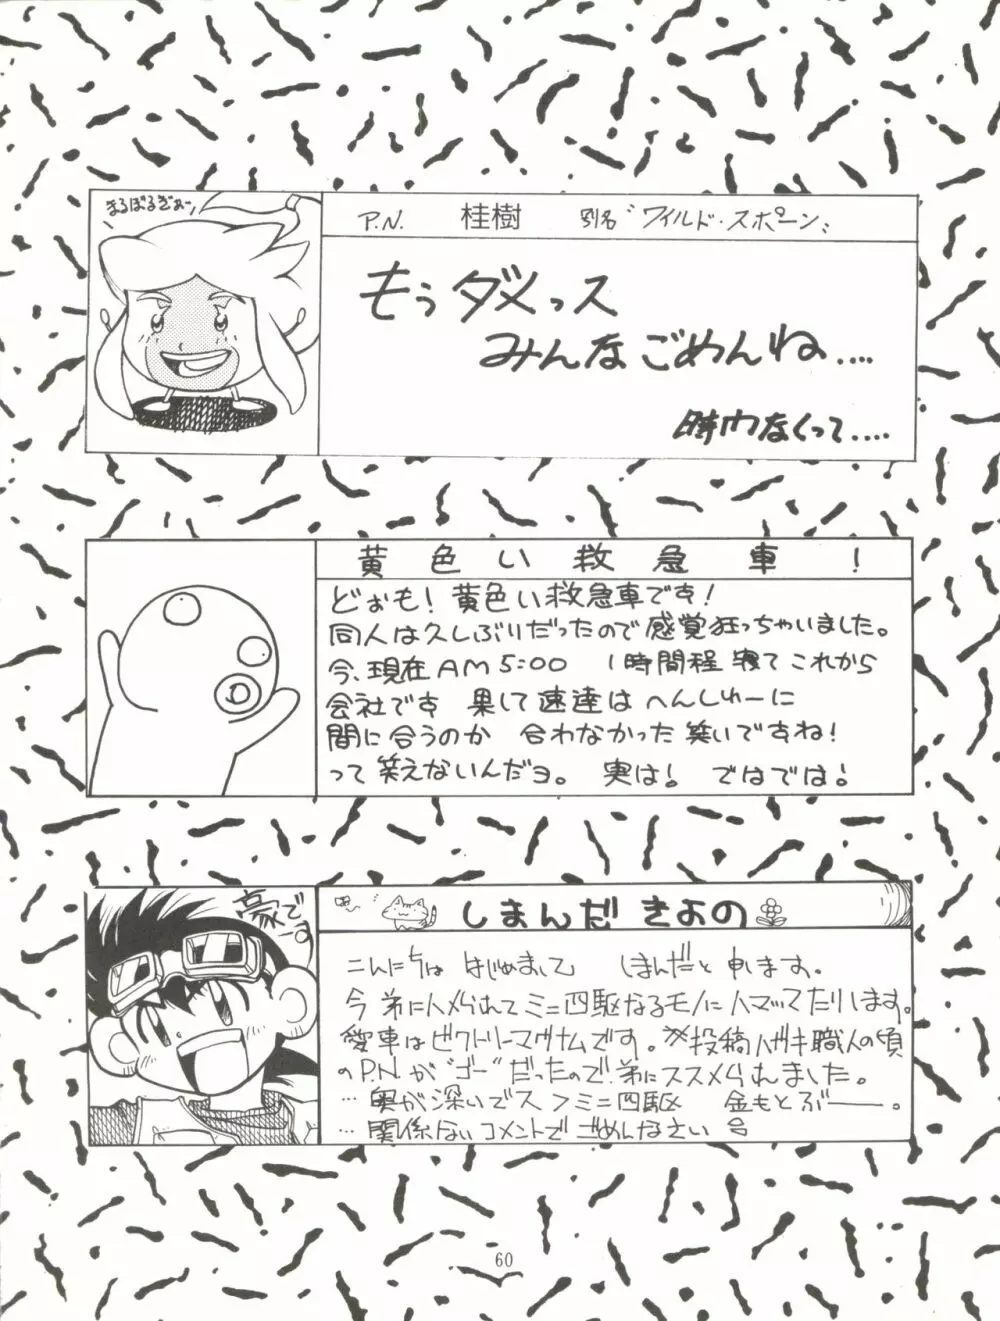 まるぼるぎおー
P.N. 桂樹 別名“ワイルド・スポーン”
もうダメっス
みんなごめんね....
時間なくって....
黄色い救急車!
どぉも! 黄色い救急車です!
同人は久しぶりだったので感覚狂っちゃいました。
今、現在AM5:00 1時間程寝てこれから
会社です 果して速達はへんしゅーに
間に合うのか 合わなかった笑いですね!
って笑えないんだヨ。 実は! ではでは!
豪です
しまんだきよの
こんにちは はじめまして しまんだと申します。
今弟にハメられてミニ四駆なるモノにハマッてたりします。
愛車はビクトリーマグナムです。※投稿ハガキ職人の頃
のP.N.が“ゴー”だったので弟にススメられました。
…奥が深いでスヨミニ四駆 金もとぶ――。
…関係ないコメントでごめんなさい
60